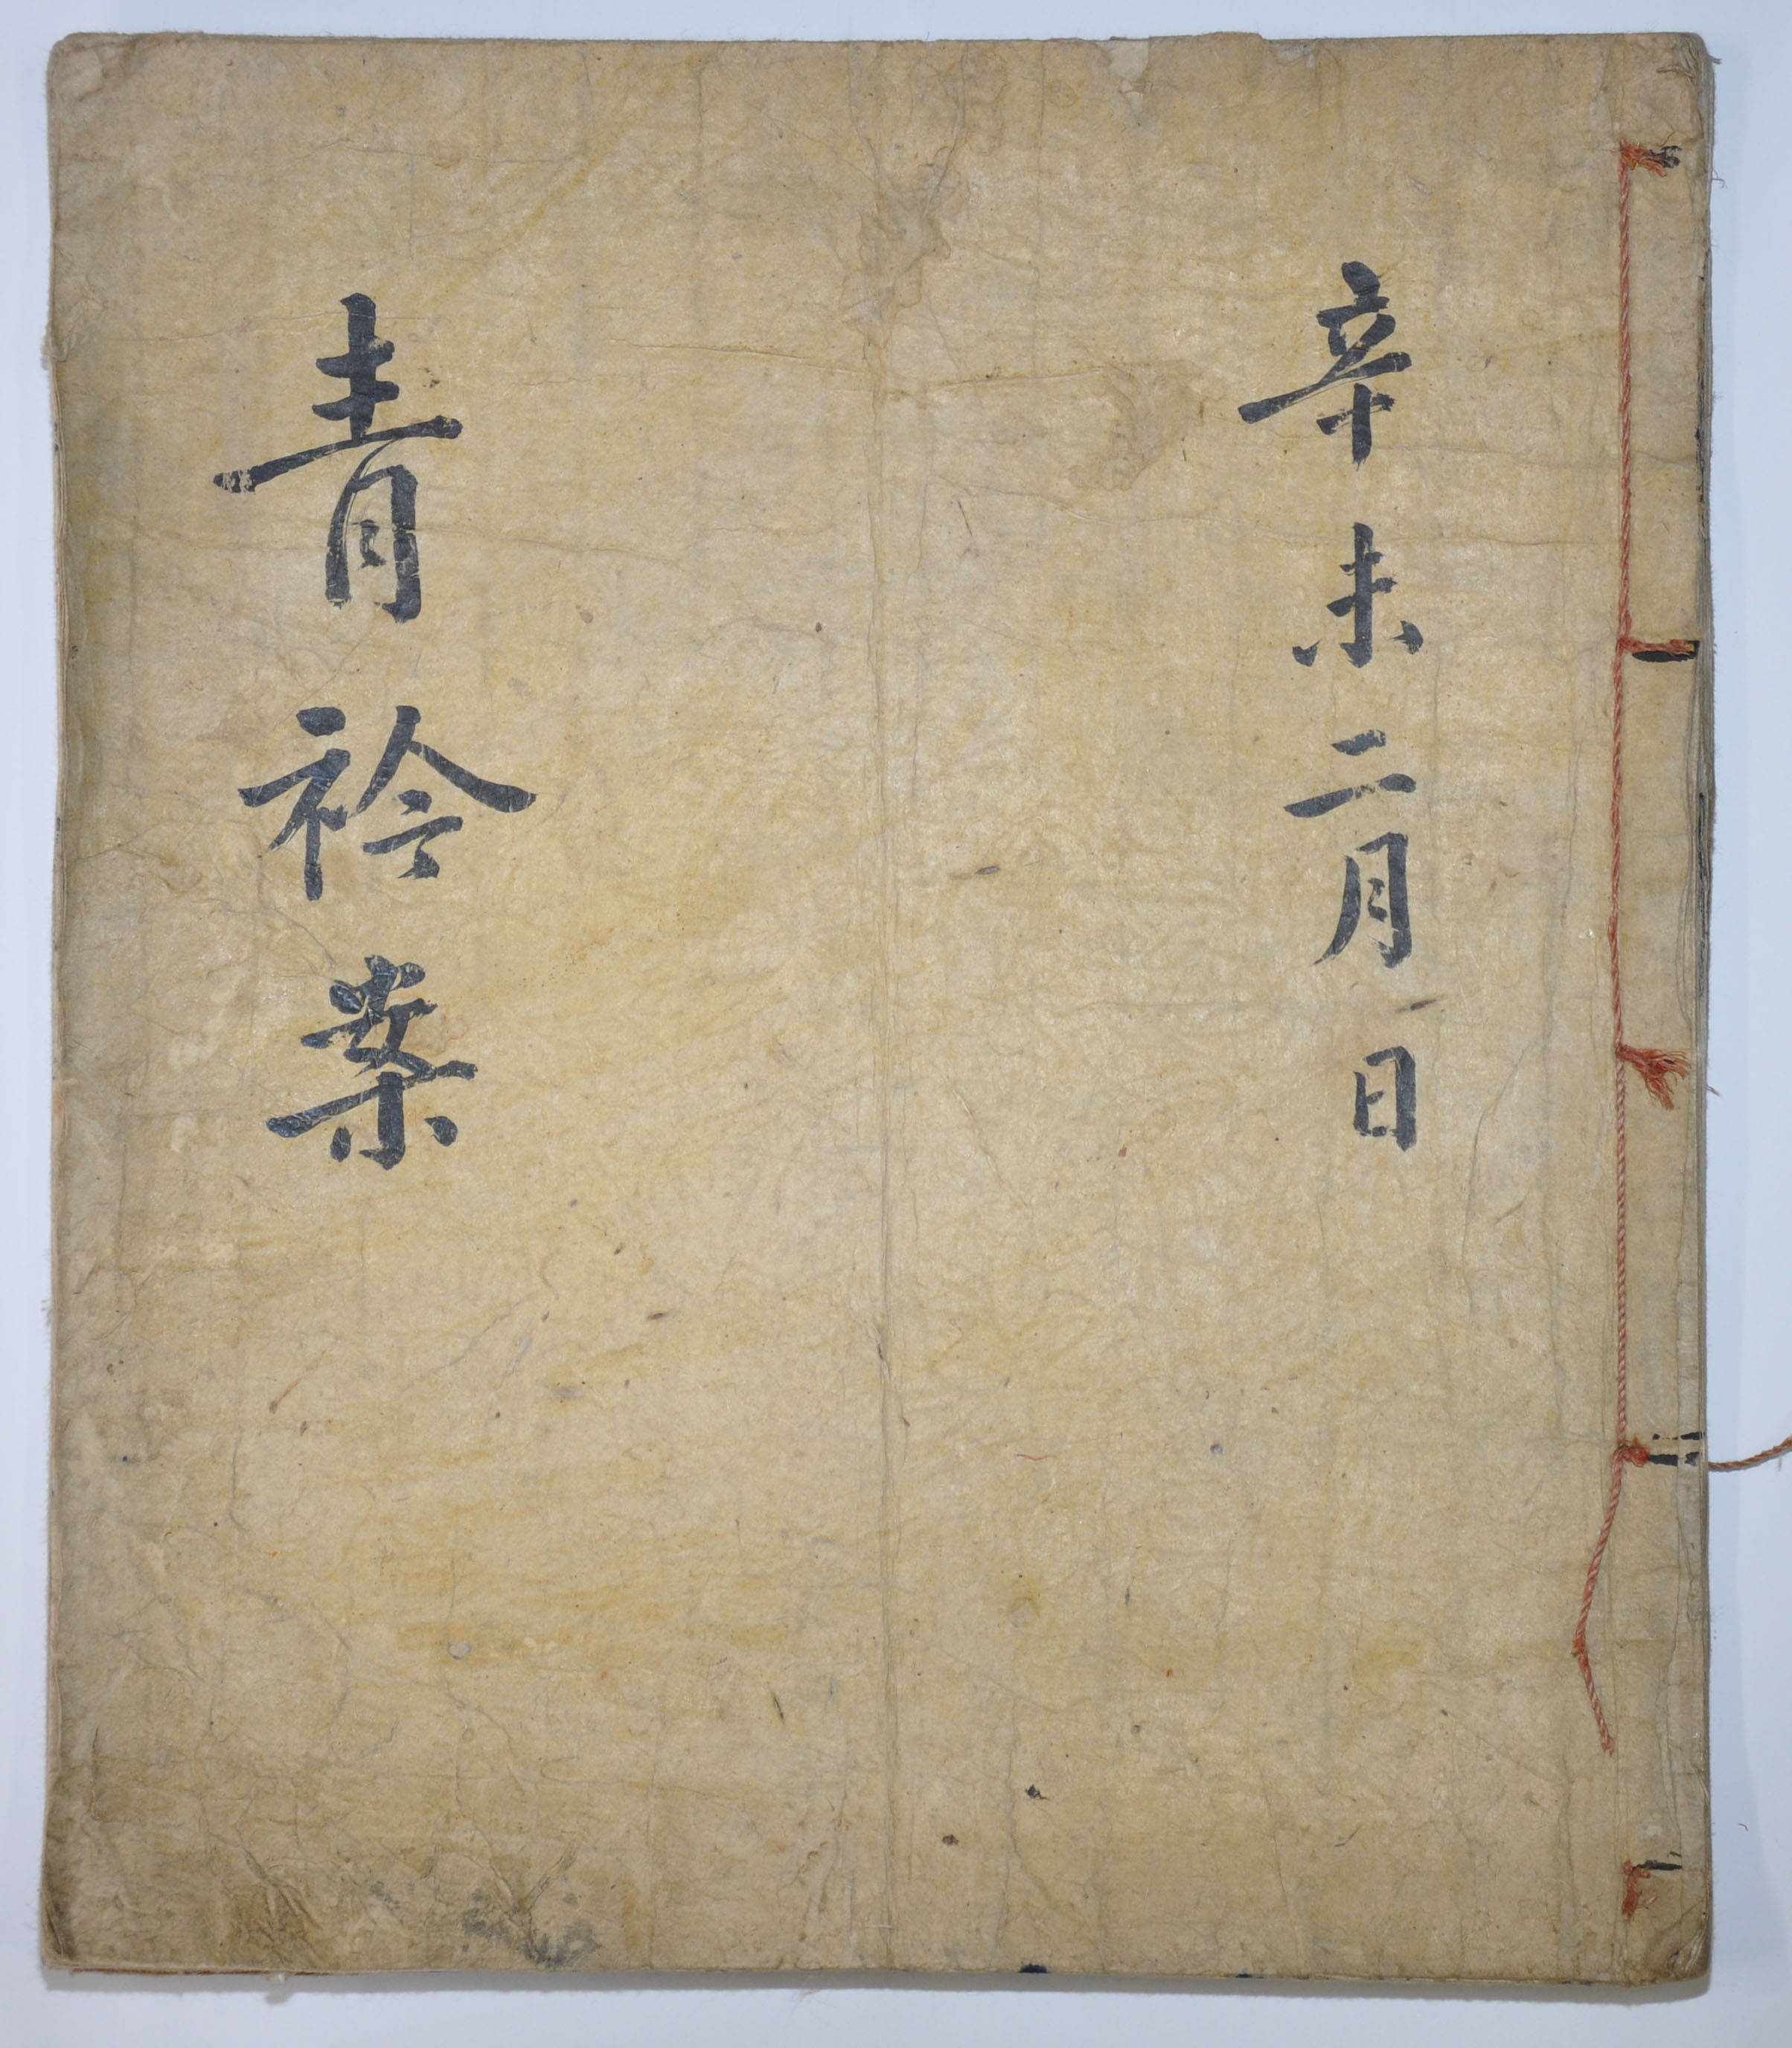 辛未二月 日
青衿案